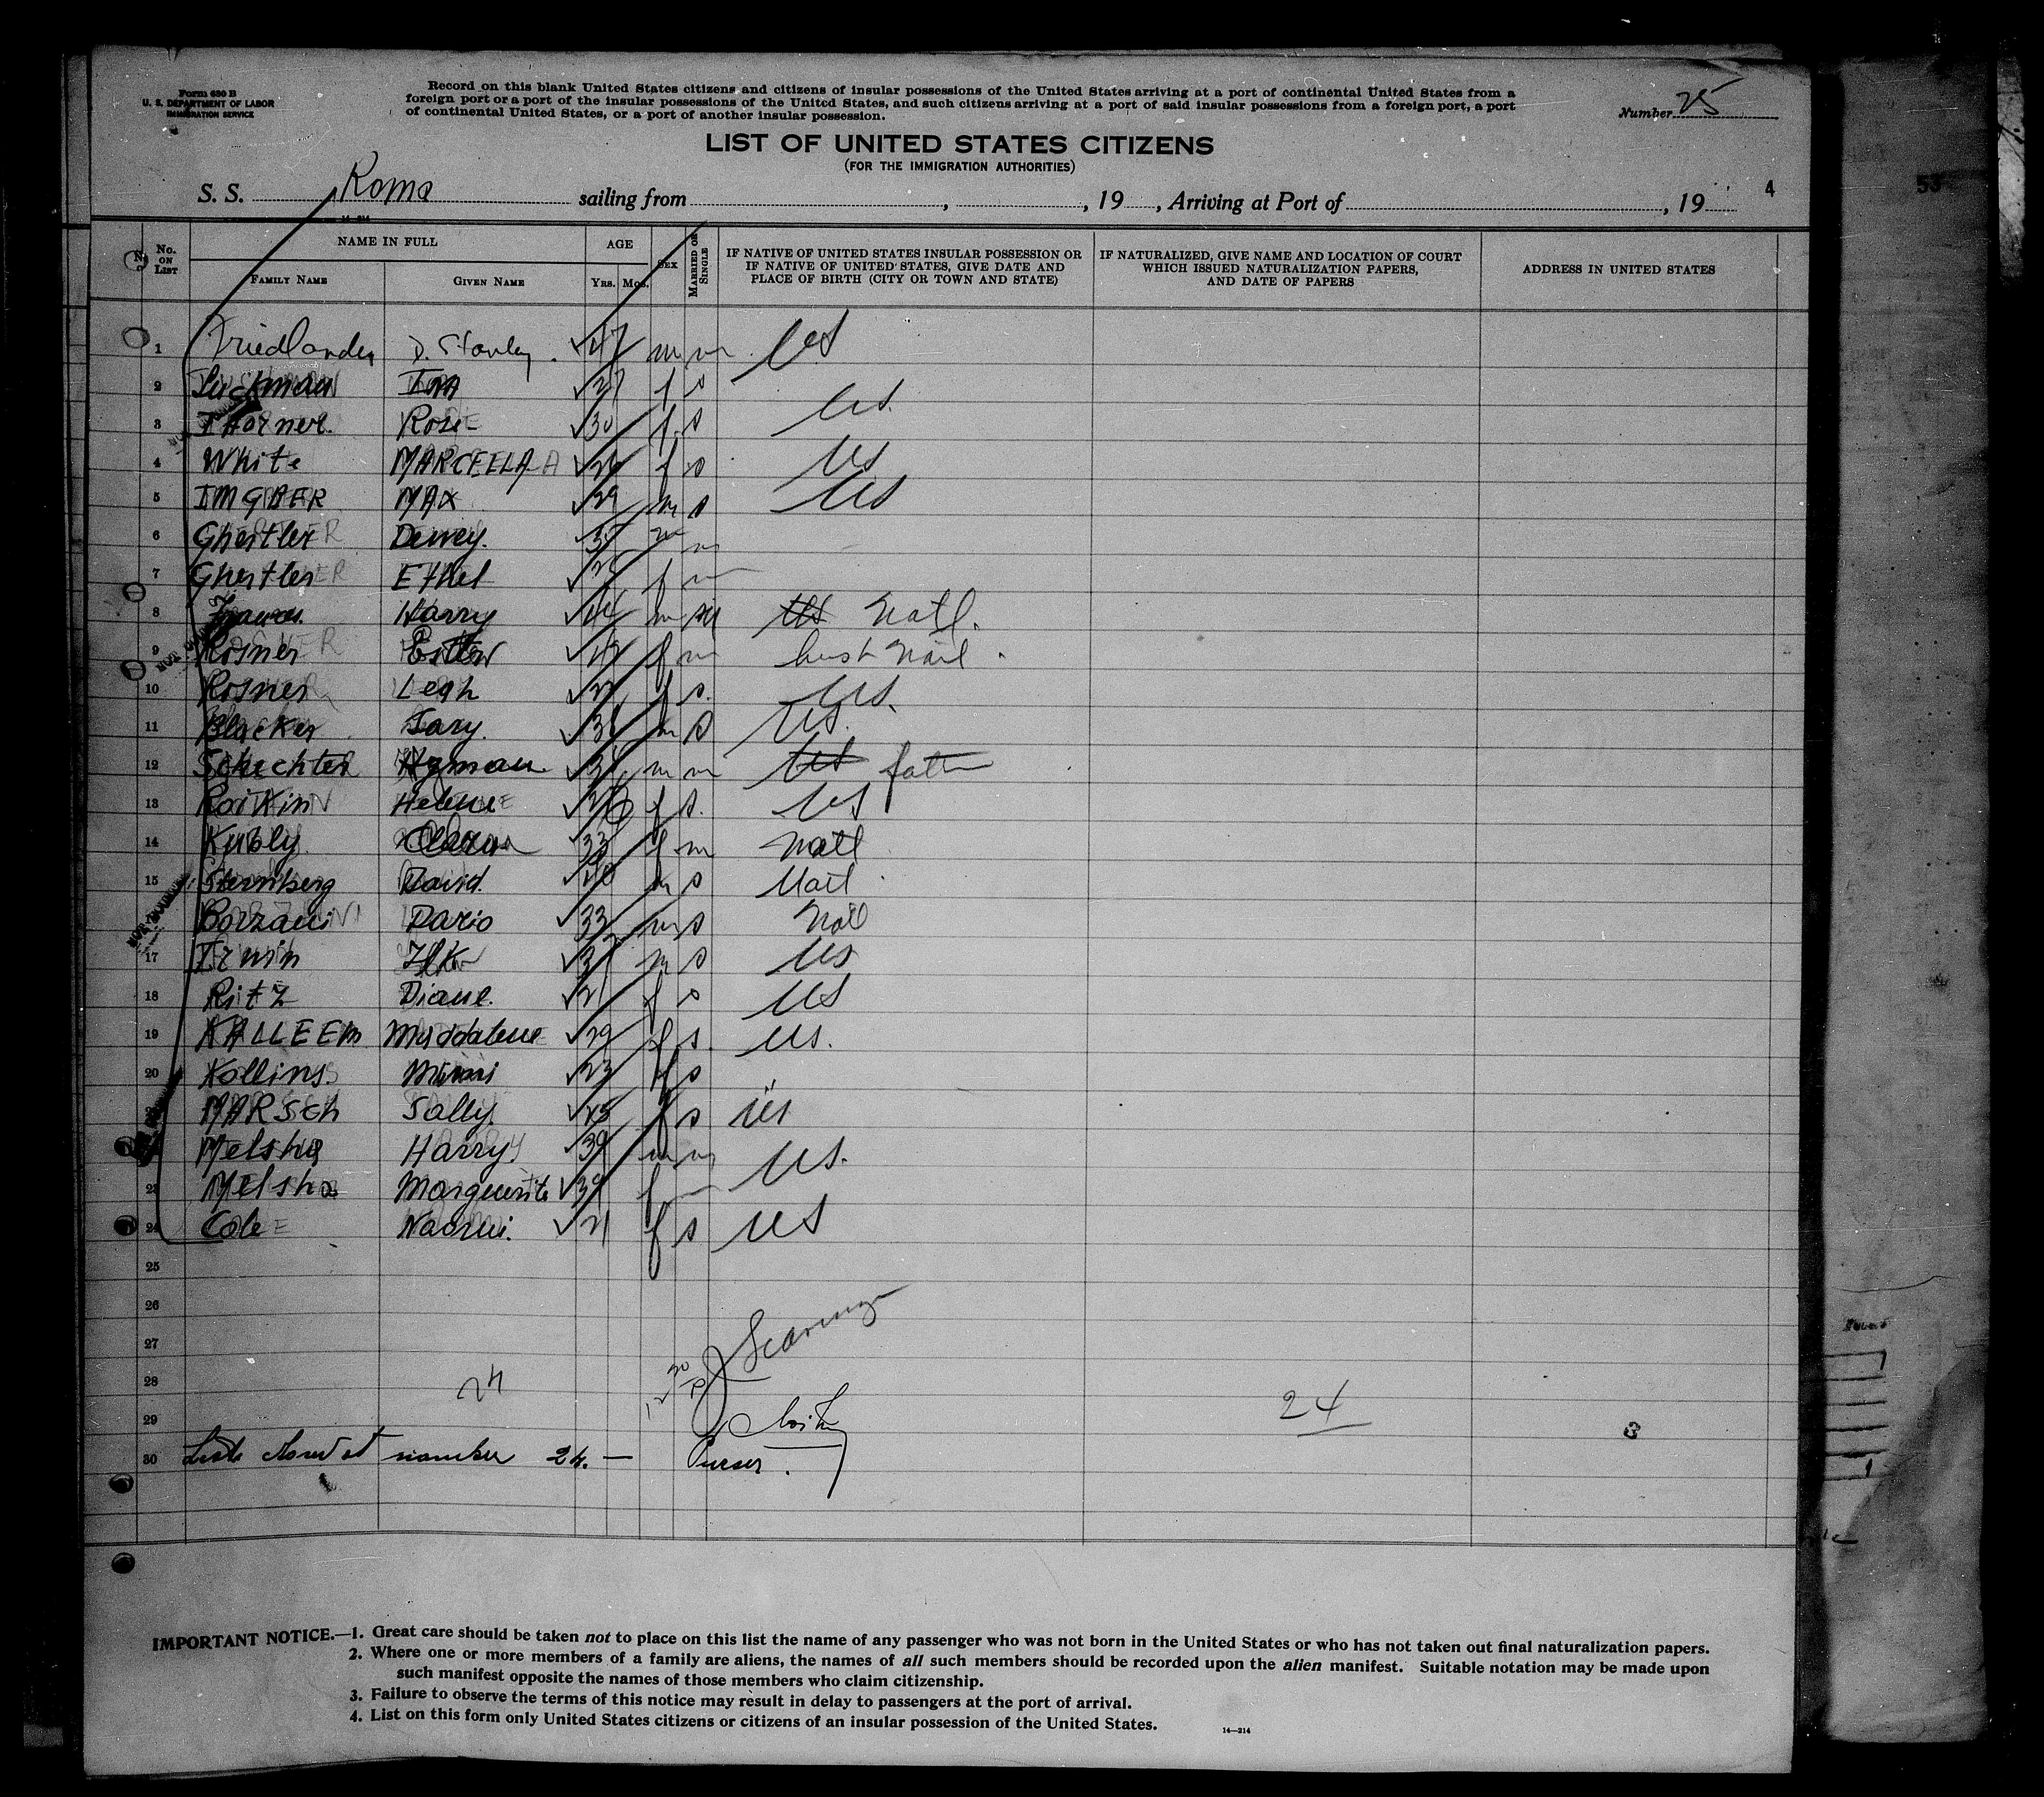 Form 630 B
U. S. DEPARTMENT OF LABOR
IMMIGRATION SERVICE
Record on this blank United States citizens and citizens of insular possessions of the United States arriving at a port of continental United States from a
foreign port or a port of the insular possessions of the United States, and such citizens arriving at a port of said insular possessions from a foreign port, a port
of continental United States, or a port of another insular possession.
Number 25
LIST OF UNITED STATES CITIZENS
(FOR THE IMMIGRATION AUTHORITIES)
S. S. Roma sailing from , , 19 , Arriving at Port of , 19
4
53
14-214
No. ON LIST
NAME IN FULL
FAMILY NAME
GIVEN NAME
AGE
YRS. MOS.
SEX
MARRIED OR SINGLE
IF NATIVE OF UNITED STATES INSULAR POSSESSION OR
IF NATIVE OF UNITED STATES, GIVE DATE AND
PLACE OF BIRTH (CITY OR TOWN AND STATE)
IF NATURALIZED, GIVE NAME AND LOCATION OF COURT
WHICH ISSUED NATURALIZATION PAPERS,
AND DATE OF PAPERS
ADDRESS IN UNITED STATES
1 Friedlander D. Stanley 47 m m US
2 Luckman f s
3 Thorner Rose 30 f s US
4 White MARCELLA f s US
5 IMGBER MAX 29 m s US
6 Ghertler Dewey m m
7 Ghertler Ethel f m
8 Harry 44 m m US Natl.
9 Rosner Esther 42 f m
10 Rosner Leah f s. US.
11 Blacker m s US.
12 Schechter Hyman m m US
13 Roitkin Helene 26 f s. US
14 Kubly Clara 33 f m Natl
15 Sternberg David m s Natl
16 Borzani Dario 33 m s Natl
17 Irwin m s US
18 Ritz Diane 21 f s US
19 KALLEEM Maddalene 29 f s. US.
20 Kollins Mimi 23 f s
MARSCH Sally 25 f s US
Melsha Harry 39 m m US.
23 Melsha Marguerite 39 f m
24 Cole Naomi 21 f s US
25
26
27
28
29
24
24
3
30 number 24. — Purser.
IMPORTANT NOTICE.—1. Great care should be taken not to place on this list the name of any passenger who was not born in the United States or who has not taken out final naturalization papers.
2. Where one or more members of a family are aliens, the names of all such members should be recorded upon the alien manifest. Suitable notation may be made upon
such manifest opposite the names of those members who claim citizenship.
3. Failure to observe the terms of this notice may result in delay to passengers at the port of arrival.
4. List on this form only United States citizens or citizens of an insular possession of the United States.
14—214